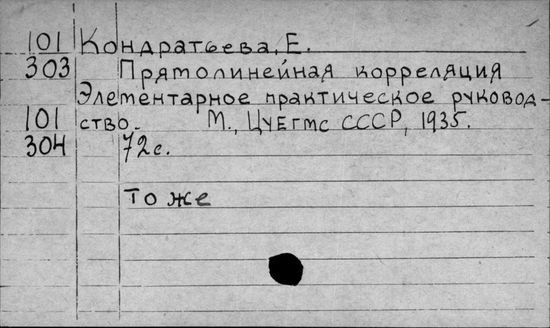 101 Кондратьева, Е.
303 Прямолинейная корреляция
Элементарное практическое руковод-
101 ство. М., ЦУЕгмс СССР, 1935.
304 72с.
То же